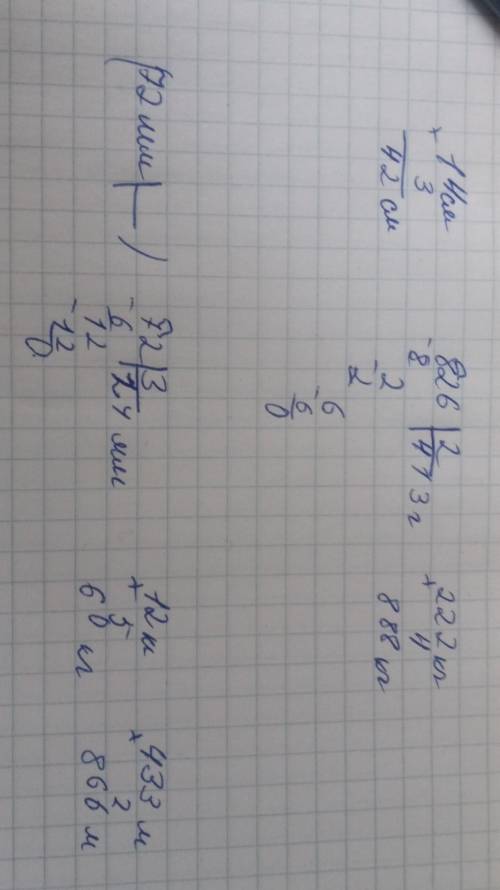 × 14 см
3
42 см
826 | 2
- 8 | 413 г
2
- 2
6
- 6
0
× 222 кг
4
888 кг
(72 мм | — )
72 | 3
- 6 | 24 мм
12
- 12
0
× 12 н
5
60 кг
× 433 м
2
866 м